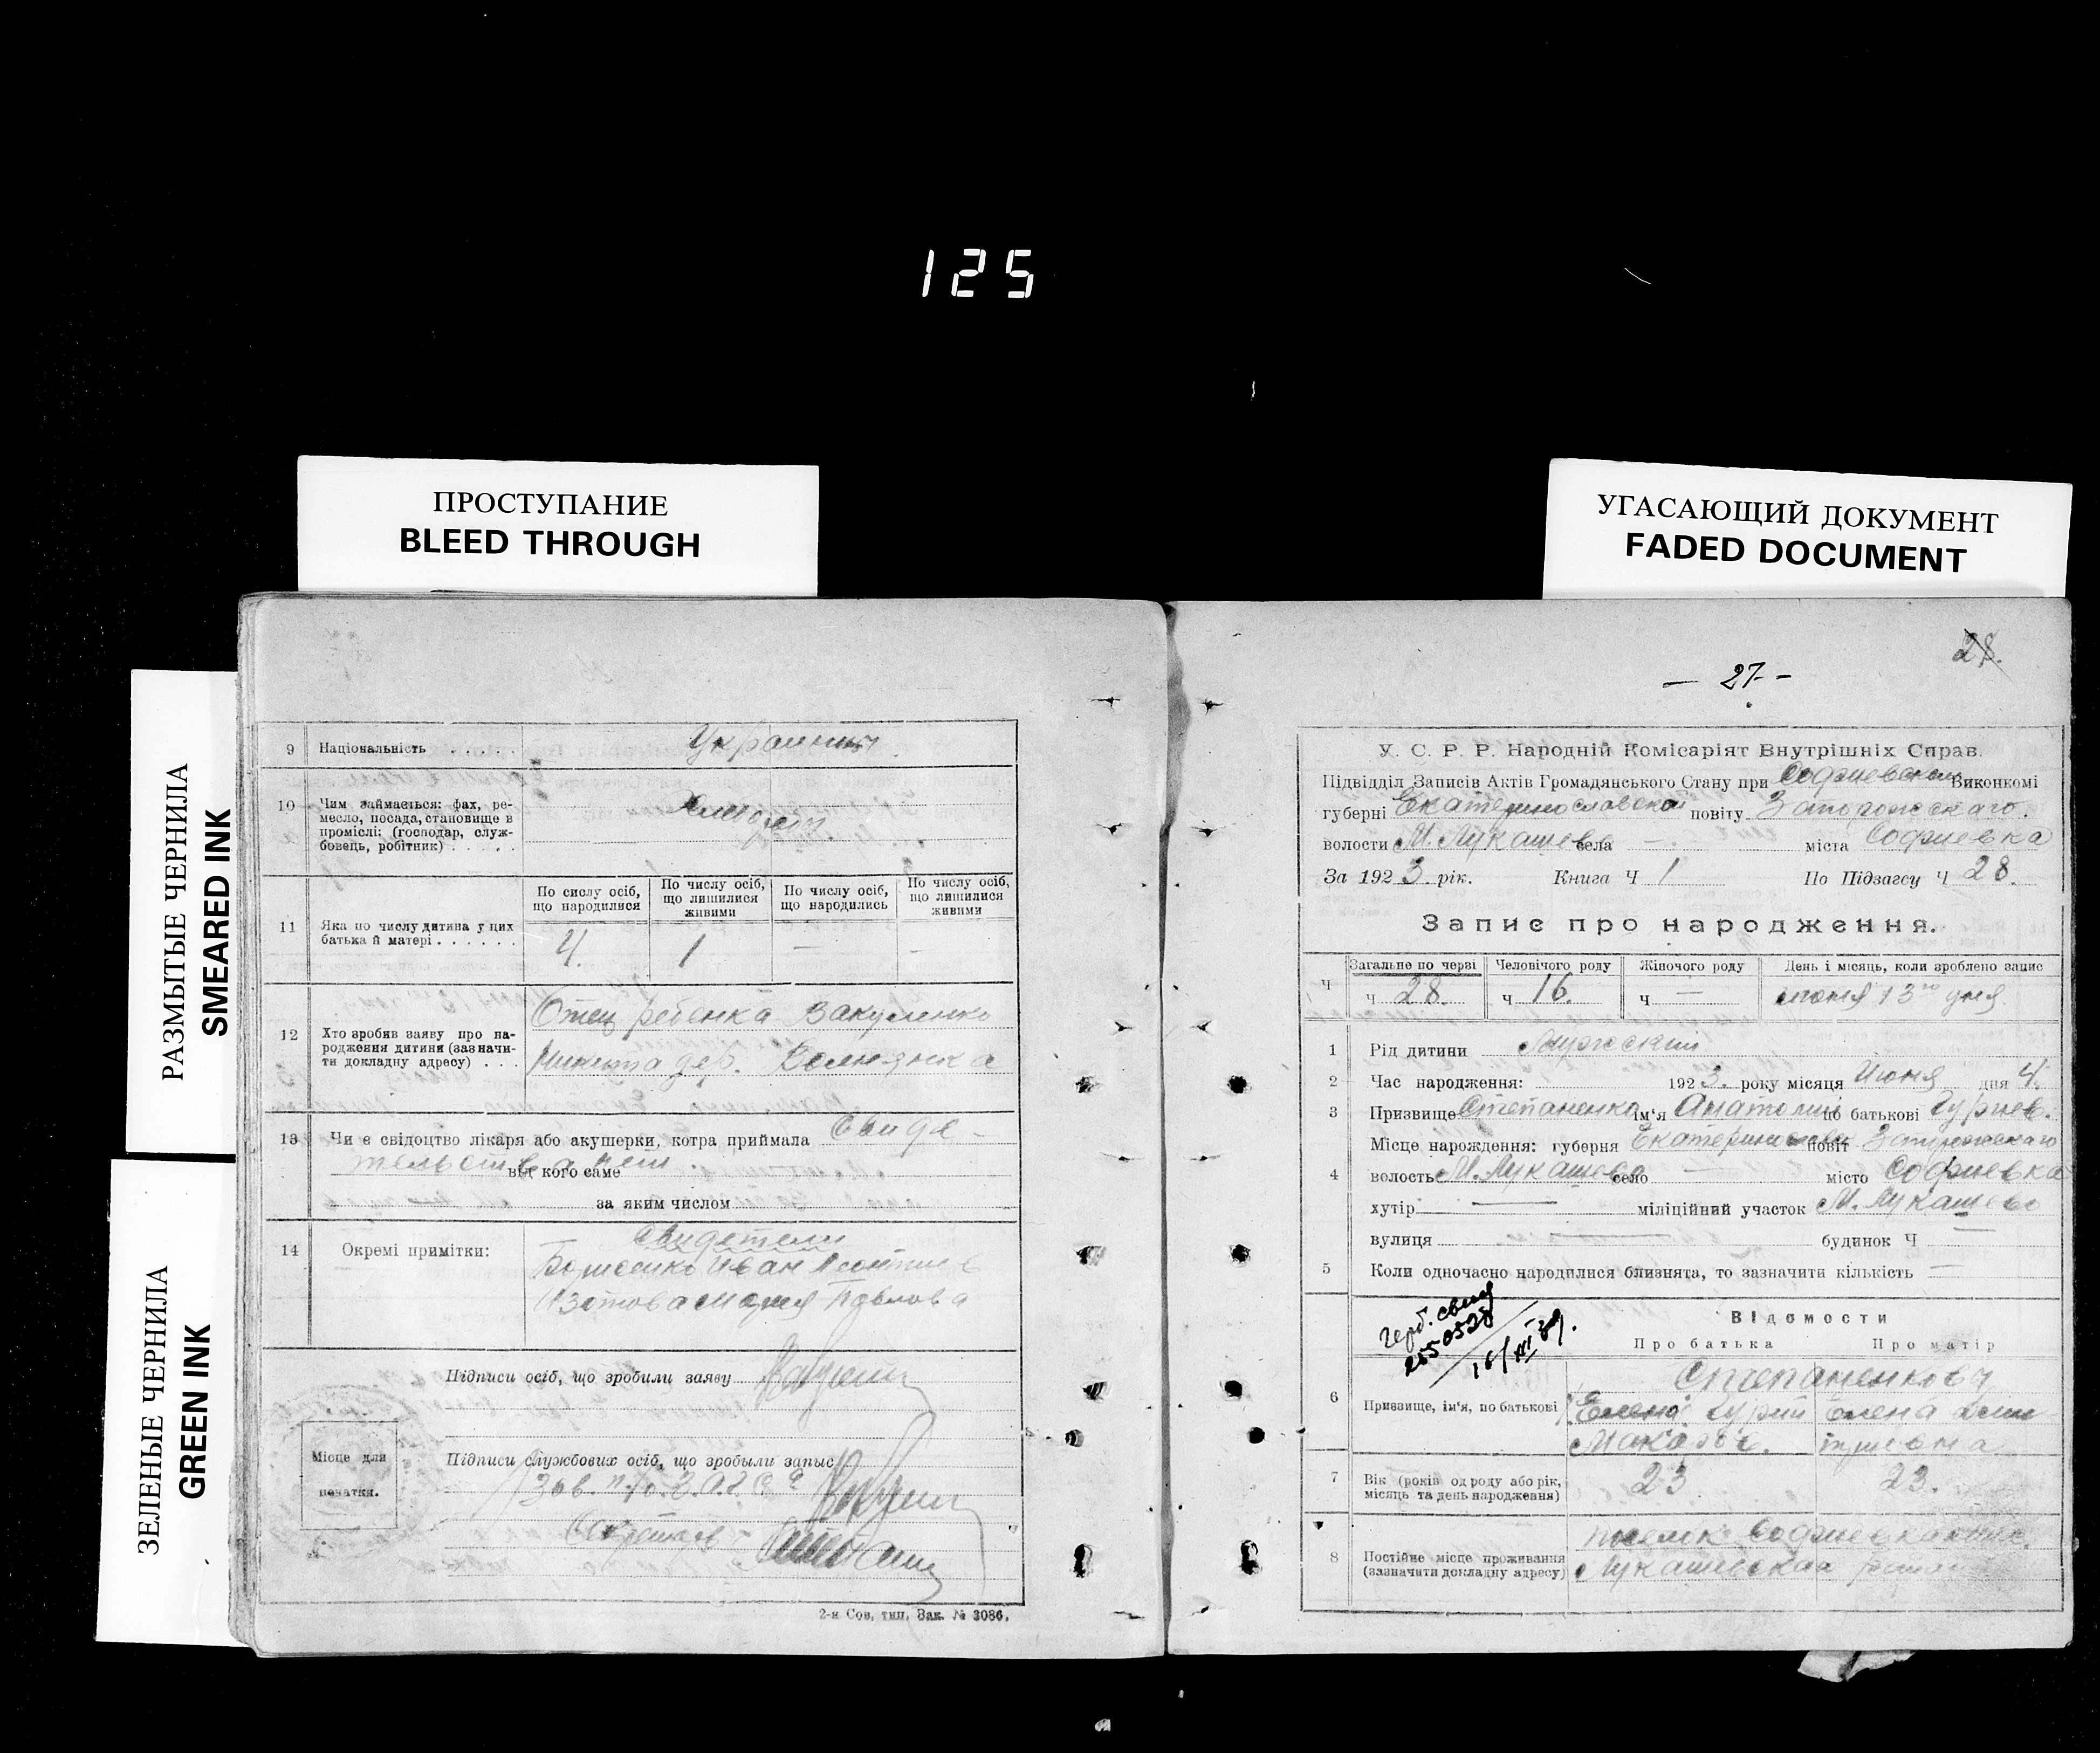 125
ПРОСТУПАНИЕ
BLEED THROUGH
УГАСАЮЩИЙ ДОКУМЕНТ
FADED DOCUMENT
РАЗМЫТЫЕ ЧЕРНИЛА
SMEARED INK
ЗЕЛЕНЫЕ ЧЕРНИЛА
GREEN INK
9 Національність
10 Чим займається: фах, ре-
месло, посада, становище в
промислі: (господар, служ-
бовець, робітник)
11 Яка по числу дитина у цих
батька й матері
По сислу осіб,
що народилися
По числу осіб,
що лишилися
живими
По числу осіб,
що народились
По числу осіб,
що лишилися
живими
4. 1 — —
12 Хто зробив заяву про на-
родження дитини (зазначи-
ти докладну адресу)
Отец ребенка Вакуленко
Никита дер.
13 Чи є свідоцтво лікаря або акушерки, котра приймала Свиде-
тельства нет. від кого саме
за яким числом
14 Окремі примітки:
Свидетели
Иван
Изотова Мария Павлова
Підписи осіб, що зробили заяву
Підписи службових осіб, що зробыли запыс
Зав. п/о. З.А.Г.С а
Секретарь
Місце для
печатки.
2-я Сов. тип. Зак. № 3086.
28.
— 27 —
У. С. Р. Р. Народній Комісаріят Внутрішніх Справ.
Підвідділ Записів Актів Громадянського Стану при Софиевском Виконкомі
губерні Екатеринославской повіту Запорожскаго.
волости М. Лукашево села — міста Софиевка
За 1923. рік. Книга Ч 1 По Підзагсу Ч 28.
Запис про народження.
Ч
Загальне по черві Человічого роду Жіночого роду День і місяць, коли зроблено запис
ч 28. ч 16. ч — июня 13го дня
1 Рід дитини Мужеский
2 Час народження: 1923. року місяця Июня дня 4.
3 Призвище Степаненко ім'я Анатолий по батькові Гурьев.
4 Місце нарождення: губерня Екатеринослав повіт Запорожскаго
волость М. Лукашево село — місто Софиевка
хутір — міліційний участок М. Лукашево
вулиця — будинок Ч —
5 Коли одночасно народилися близнята, то зазначити кількість —
Герб. свид
2550528
Відомости
Про батька Про матір
6 Призвище, ім'я, по батькові
Степаненковы
Елена Гурий Елена Дми-
Макарьев. триевна
7 Вік (років од роду або рік,
місяць та день народження)
23 23.
8 Постійне місце проживання
(зазначити докладну адресу)
Софиевка
Лукашевская